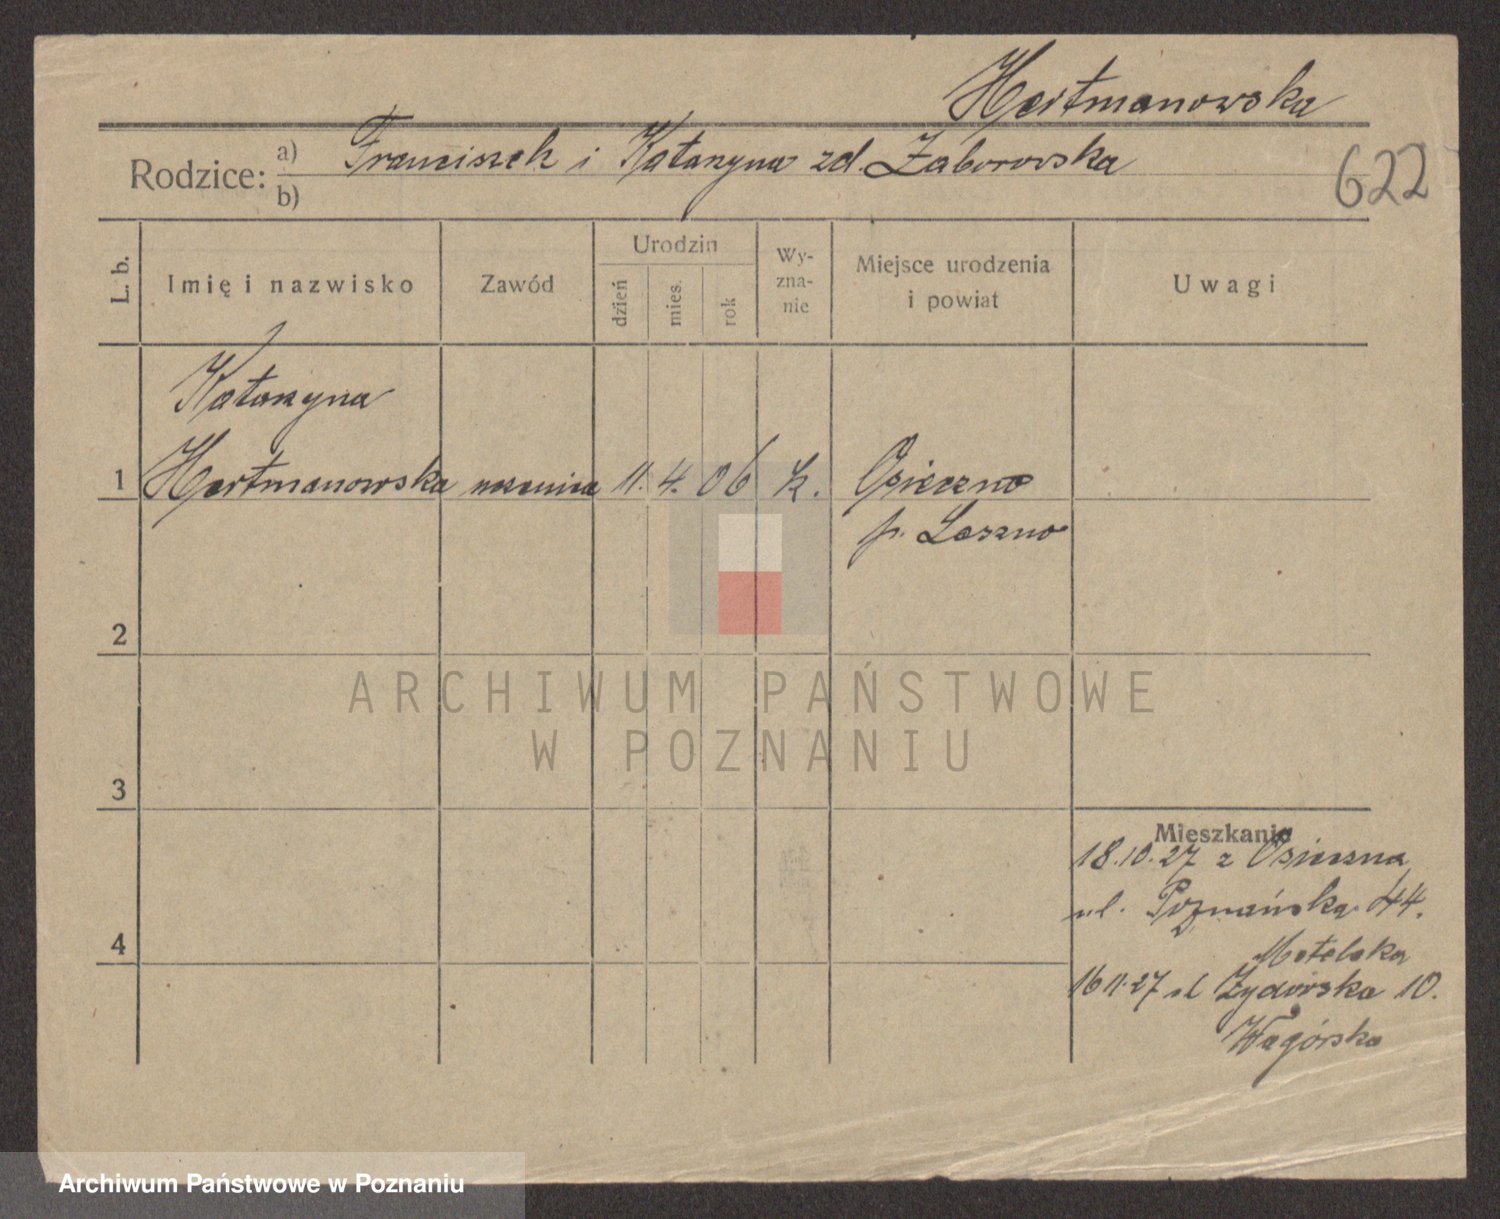 Hertmanowska
Rodzice: a) Franciszek i Katarzyna zd. Zaborowska
b)
622
L. b.
Imię i nazwisko
Zawód
Urodzin
dzień
mies.
rok
Wy-
zna-
nie
Miejsce urodzenia
i powiat
Uwagi
Katarzyna
1 Hertmanowska uczenica 11. 4. 06 k. Osieczno
p. Leszno
2
ARCHIWUM PAŃSTWOWE
W POZNANIU
3
Mieszkanie
18.10.27 z Osieczna
ul. Poznańska 44.
4
16 11.27 ul Żydowska 10.
Wągórska
Archiwum Państwowe w Poznaniu